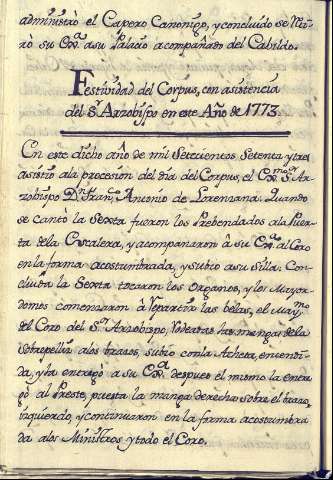 administró el Capero Canonigo, y concluído se reti-
ró su Ex.ª a su Palacio acompañado del Cabildo.
Festividad del Corpus, con asistencia
del S.r Arzobispo en este Año de 1773.
En este dicho año de mil Setecientos Setenta y tres
asistió ala procesion del dia del Corpus, el Ex.mo S.r Ar-
zobispo D.n Fran.co Antonio de Lorenzana. Quando
se cantó la Sexta fueron los Prebendados ala Puer-
ta dela Escalera, y acompañaron à su Ex.ª al Coro
en la forma acostumbrada, y subio a su Silla. Con-
cluida la Sexta tocaron los Organos, y los Mayor-
domos comenzaron à repartir las belas, el May.mo
del Coro del S.r Arzobispo, rodeadas las mangas dela
sobrepelliz alos brazos, subió con la Acheta, encendi-
da, y la entregó a su Ex.ª despues el mismo la entre-
gó al Preste, puesta la manga derecha sobre el brazo
izquierdo, y continuaron en la forma acostumbra-
da alos Ministros y todo el Coro.